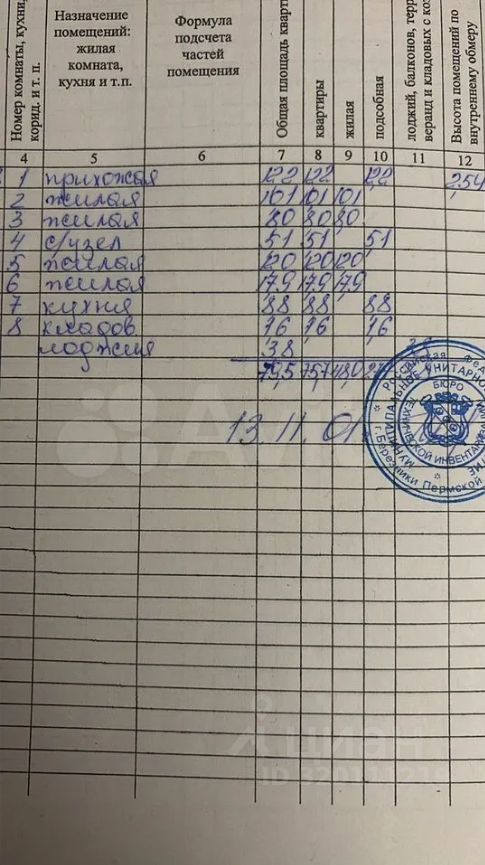 Номер комнаты, кухни,
корид. и т. п.
Назначение
помещений:
жилая
комната,
кухня и т.п.
Формула
подсчета
частей
помещения
Общая площадь кварти
квартиры
жилая
подсобная
лоджий, балконов, терр
веранд и кладовых с ко
Высота помещений по
внутреннему обмеру
4 5 6 7 8 9 10 11 12
1 прихожая 12,2 12,2 12,2 2,54
2 жилая 10,1 10,1 10,1
3 жилая 8,0 8,0 8,0
4 с/узел 5,1 5,1 5,1
5 жилая 12,0 12,0 12,0
6 жилая 17,9 17,9 17,9
7 кухня 8,8 8,8 8,8
8 кладов. 1,6 1,6 1,6
лоджия 3,8
79,5 75,7 48,0 27
13.11.01
Российская Феде
МУНИЦИПАЛЬНОЕ УНИТАРНО
БЮРО
ТЕХНИЧЕСКОЙ ИНВЕНТАР
г. Березники Пермской
Avito
циан